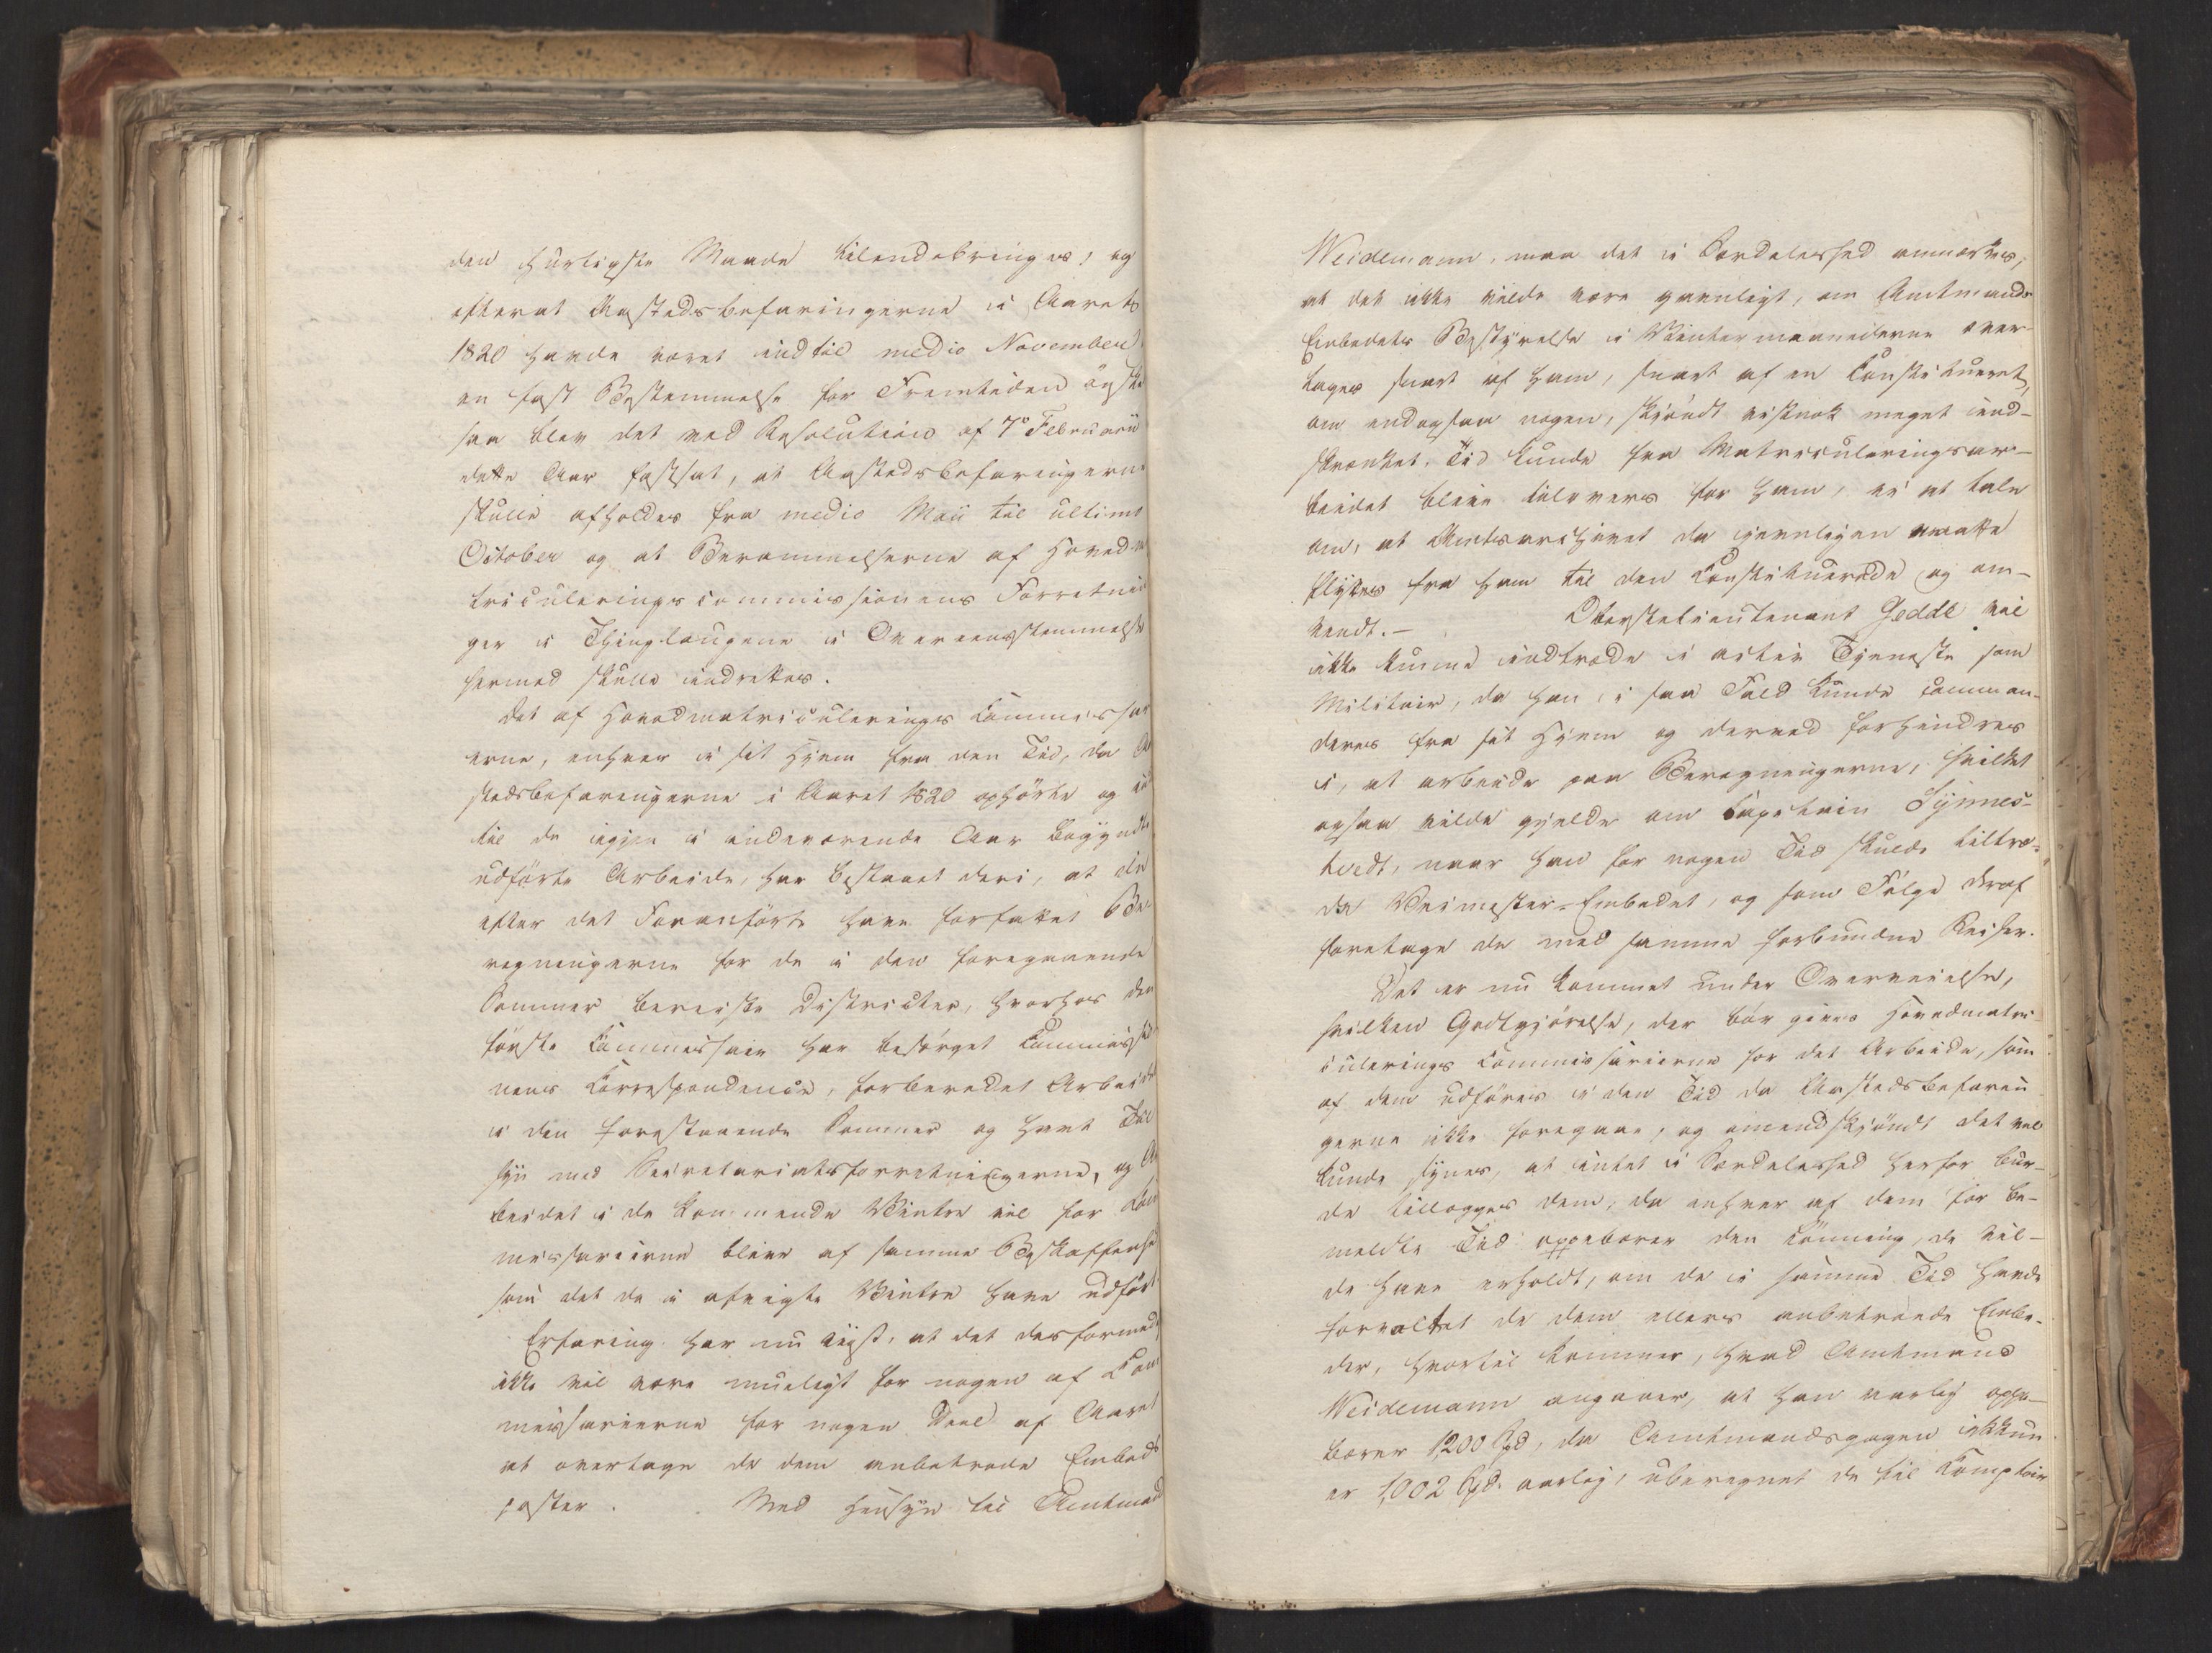 den hurtigste Maade tilendebringes, og
efterat Aastedsbefaringerne i Aaret
1820 havde varet indtil medio November
en fast Bestemmelse for Fremtiden
saa blev det ved Resolution af 7de Februarii
dette Aar fastsat, at Aastedsbefaringerne
skulle afholdes fra medio Maii til ultimo
October og at Berammelserne af Hovedma
triculeringscommissionens Forretnin
ger i Thinglaugene i Overeensstemmelse
hermed skulle indrettes.
Det af Hovedmatriculerings Commissari
erne, enhver i sit Hjem fra den Tid, da Aa
stedsbefaringerne i Aaret 1820 ophørte og ind
til de igjen i indeværende Aar begyndte
udførte Arbeide, har bestaaet deri, at de
efter det Foranførte have forfattet Be
regningerne for de i den foregaaende
Sommer bereiste Districter, hvorhos den
første Commissair har besørget Commissio
nens Correspondence, forberedet Arbeidet
i den forestaaende Sommer og havt Til
syn med Secretariatsforretningerne, og Ar
beidet i de kommende Vintre vil for Com
missarierne blive af samme Beskaffenhed
som det de i afvigte Vintre have udført.
Erfaring har nu viist, at det desformedelst
ikke vil være mueligt for nogen af Com
missarierne for nogen Deel af Aaret
at overtage de dem anbetroede Embeds
poster. Med Hensyn til Amtmand
Weidemann, maa det i Særdeleshed anmærkes,
at det ikke vilde være gavnligt, om Amtmands
Embedets Bestyrelse i Vintermaanederne over-
toges snart af ham, snart af en Constitueret,
om endogsaa nogen, skjøndt vistnok meget ind-
skrænket, Tid kunde fra Matriculeringsar-
beidet blive tilovers for ham, ei at tale
om, at Amtsarchivet da jevnligen maatte
flyttes fra ham til den Constituerede og om-
vendt. — Oberstelieutenant Gedde vil
ikke kunne indtræde i activ Tjeneste som
Militair, da han i saa Fald kunde comman-
deres fra sit Hjem og derved forhindres
i, at arbeide paa Beregningerne, hvilket
ogsaa vilde gjelde om Capitain Synnes-
tvedt, naar han for nogen Tid skulde tiltræ-
de Veimester-Embedet, og som Følge deraf
foretage de med samme forbundne Reiser.
Det er nu kommet under Overveielse,
hvilken Godtgjørelse, der bør gives Hovedmatri
culerings Commissarierne for det Arbeide, som
af dem udføres i den Tid da Aastedsbefarin
gerne ikke foregaae, og omendskjøndt det vel
kunde synes, at intet i Særdeleshed herfor bur-
de tillægges dem, da enhver af dem for be-
meldte Tid oppebærer den Lønning, de vil-
de have erholdt, om de i samme Tid havde
forvaltet de dem ellers anbetroede Embe-
der, hvortil kommer, hvad Amtmand
Weidemann angaaer, at han aarlig oppe-
bærer 1200 Spd, da Amtmandsgagen ikkun
er 1,002 Spd. aarlig, uberegnet de til Comptoir